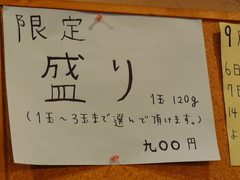 限定
盛り
1玉 120g
(1玉～3玉まで選んで頂けます。)
九〇〇円
9
6日
7日
14
よ